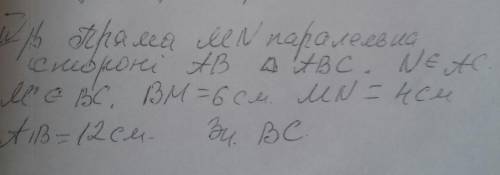 IV р Пряма MN паралельна
стороні AB △ ABC. N∈AC
M∈BC. BM=6 см. MN=4см
AB=12см. Зн. BC